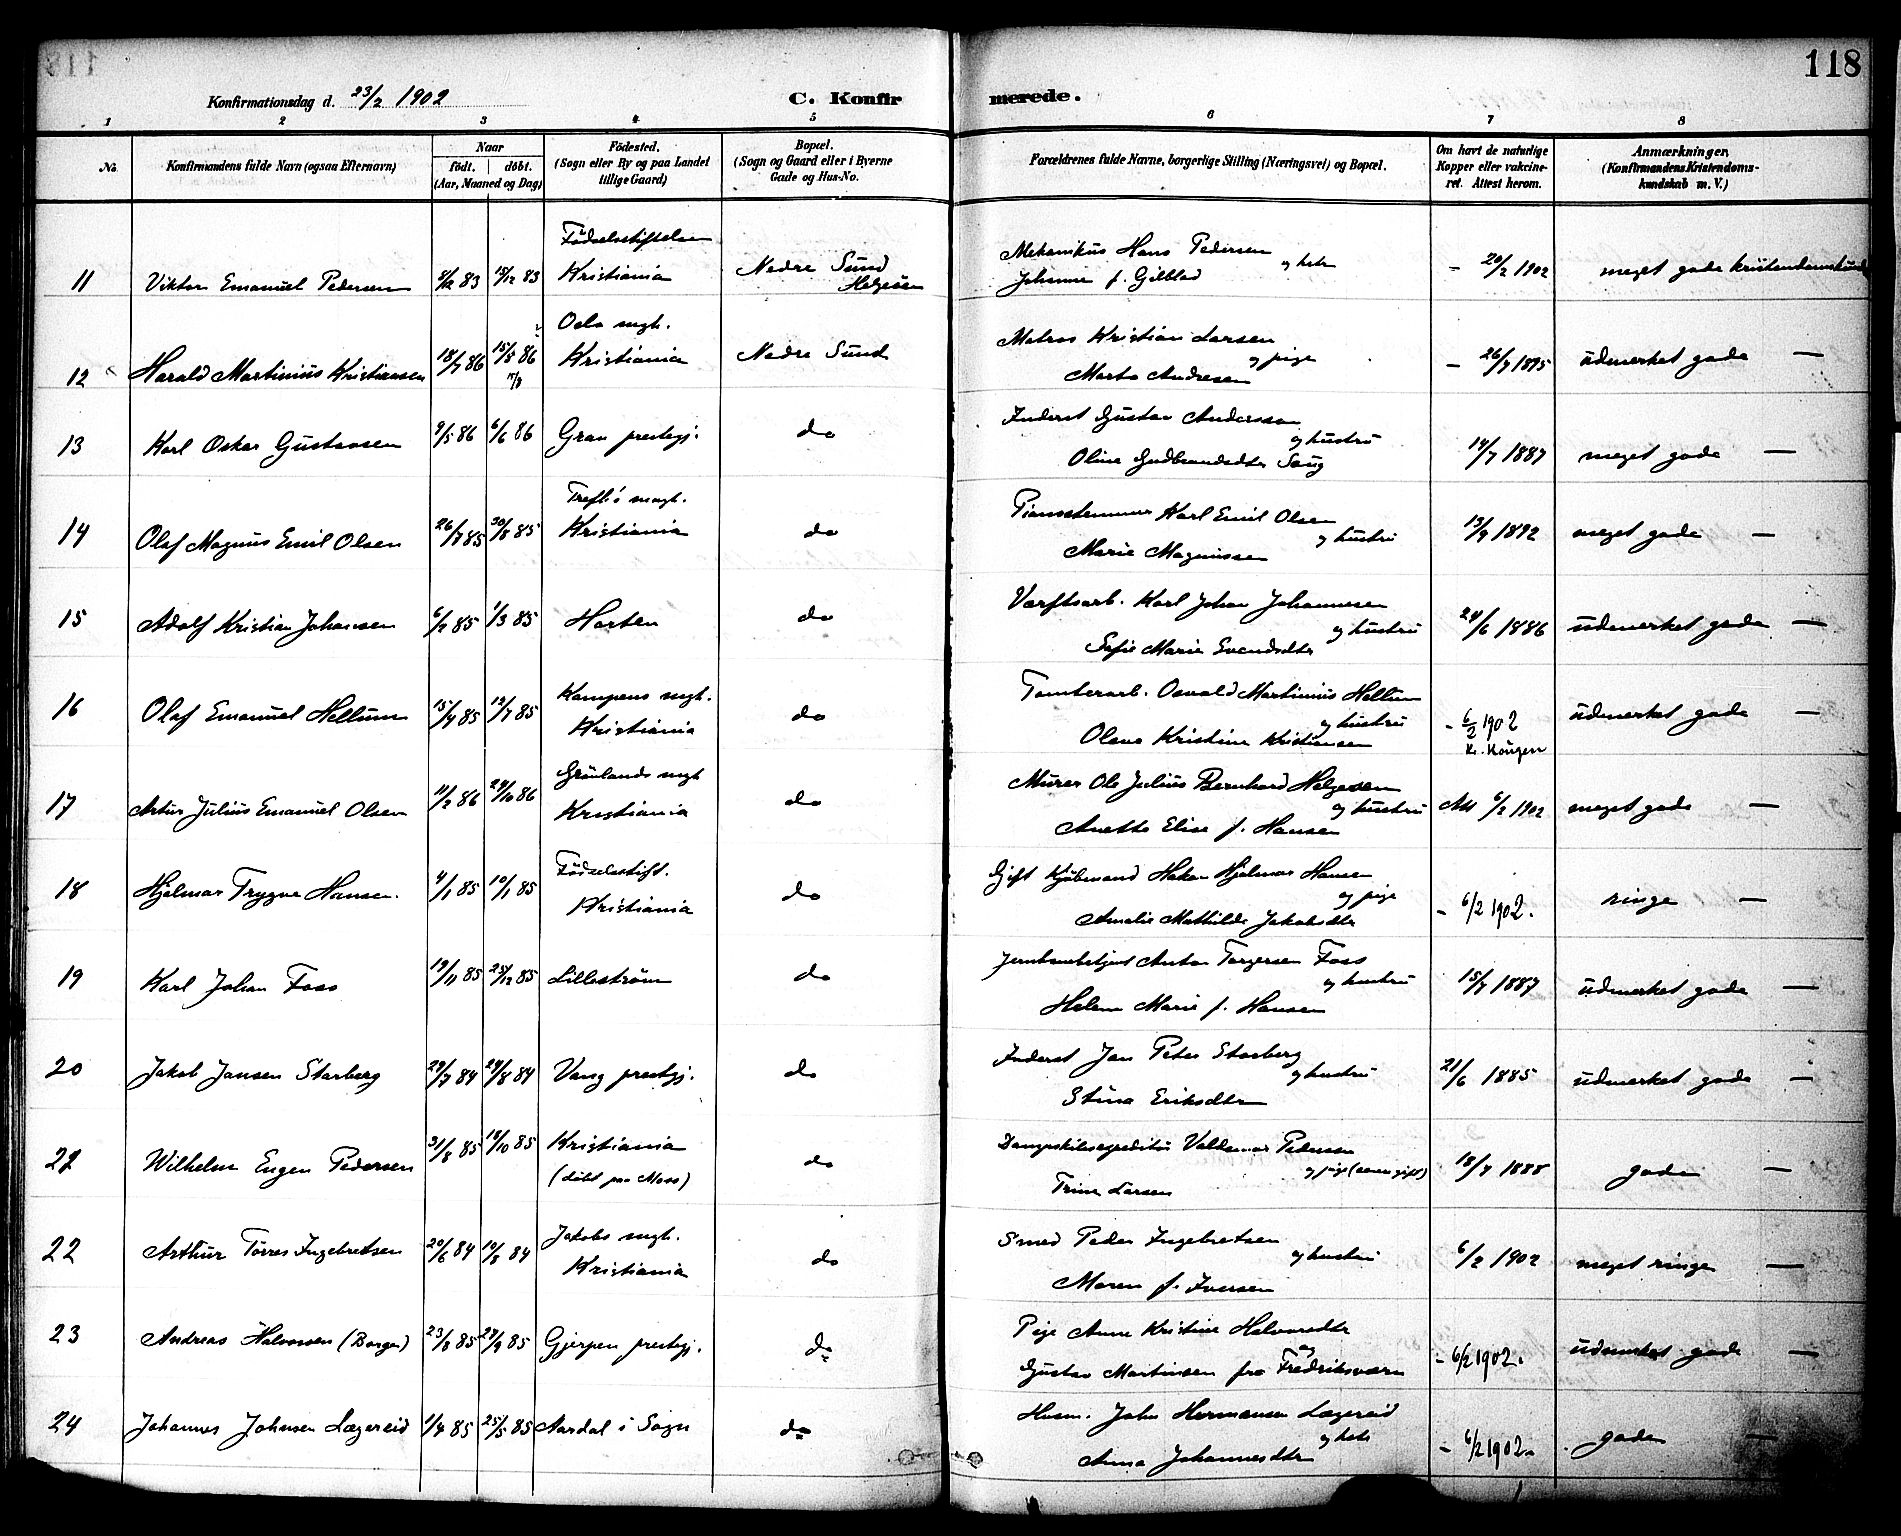 118
Konfirmationsdag d. 23/2 1902
C. Konfirmerede.
1 2 3 4 5 6 7 8
No.
Konfirmandens fulde Navn (ogsaa Efternavn)
Naar
født. døbt.
(Aar, Maaned og Dag)
Fødested.
(Sogn eller By og paa Landet
tillige Gaard)
Bopæl.
(Sogn og Gaard eller i Byerne
Gade og Hus-No.
Forældrenes fulde Navne, borgerlige Stilling (Næringsvei) og Bopæl.
Om havt de naturlige
Kopper eller vakcine-
ret. Attest herom.
Anmærkninger,
(Konfirmandens Kristendoms-
kundskab m. V.)
Fødselsstiftelsen
11 Viktor Emanuel Pedersen 15/12 83 Kristiania Nedre Sund
Helgøen
Mekanikus Hans Pedersen
og hstr
Johanne f. Gilblad
- 20/2 1902 meget gode kristendomskund
Oslo mgh.
12 Harald Martinius Kristiansen 18/7 86 15/8 86 Kristiania Nedre Sund
Matros Kristian Larsen
og pige
Marta Andresen
- 26/7 1895 udmerket gode —
13 Karl Oskar Gustavsen 9/5 86 6/6 86 Gran prestegj. do
Inderst Gustav Andersson
og hustru
Oline Gudbrandsdtr Saug
14/7 1887 meget gode —
14 Olaf Magnus Emil Olsen 26/7 85 30/8 85 Kristiania do
Pianostemmer Karl Emil Olsen
og hustru
Marie Magnussen
13/9 1892 meget gode —
15 Adolf Kristian Johansen 6/2 85 1/3 85 Horten do
Værftsarb. Karl Johan Johannesen
og hustru
Sofie Marie Evensdtr
24/6 1886 udmerket gode —
Kampens mgh.
16 Olaf Emanuel Hellum 15/4 85 12/7 85 Kristiania do
Tomterarb. Osvald Martinius Hellum
og hustru
Olava Kristine Kristiansen
- 6/2 1902
K. Haugen
udmerket gode —
Grønlands mgh
17 Artur Julius Emanuel Olsen 11/2 86 24/10 86 Kristiania do
Murer Ole Julius Bernhard Helgesen
og hustru
Anette Elise f. Hansen
Att 6/2 1902 meget gode —
Fødselsstift.
18 Hjalmar Trygve Hansen. 4/1 85 10/1 85 Kristiania do
Gift Kjøbmand Hakon Hjalmar Hansen
og pige
Amalie Mathilde Jakobsdtr
- 6/2 1902. ringe —
19 Karl Johan Foss 19/11 85 25/12 85 Lillestrøm do
Jernbanebetjent Anton Torgersen Foss
og hustru
Helene Marie f. Hansen
15/7 1887 udmerket gode —
20 Jakob Jansen Starberg 29/7 84 24/8 84 Vang prestegj. do
Inderst Jan Peter Starberg
og hustru
Stina Eriksdtr
21/6 1885 udmerket gode —
21 Wilhelm Eugen Pedersen 31/8 85 18/10 85 Kristiania
(døbt paa Moss) do
Dampskibsexpeditør Valdemar Pedersen
og pige (senere gift)
Trine Larsen
18/7 1888 gode —
Jakobs mgh.
22 Arthur Torres Ingebretsen 20/6 84 10/8 84 Kristiania do
Smed Peder Ingebretsen
og hustru
Maren f. Iversen
6/2 1902 meget ringe —
23 Andreas Halvorsen (Borge) 23/8 85 27/9 85 Gjerpen prestegj. do
Pige Anne Kristine Halvorsdtr
og
Gustav Martinsen fra Fredriksværn
- 6/2 1902. udmerket gode —
24 Johannes Johnsen Lægereid 1/4 85 25/5 85 Aardal i Sogn do
Husm. John Hermansen Lægereid
og hstr
Anna Johannesdtr
- 6/2 1902. gode —